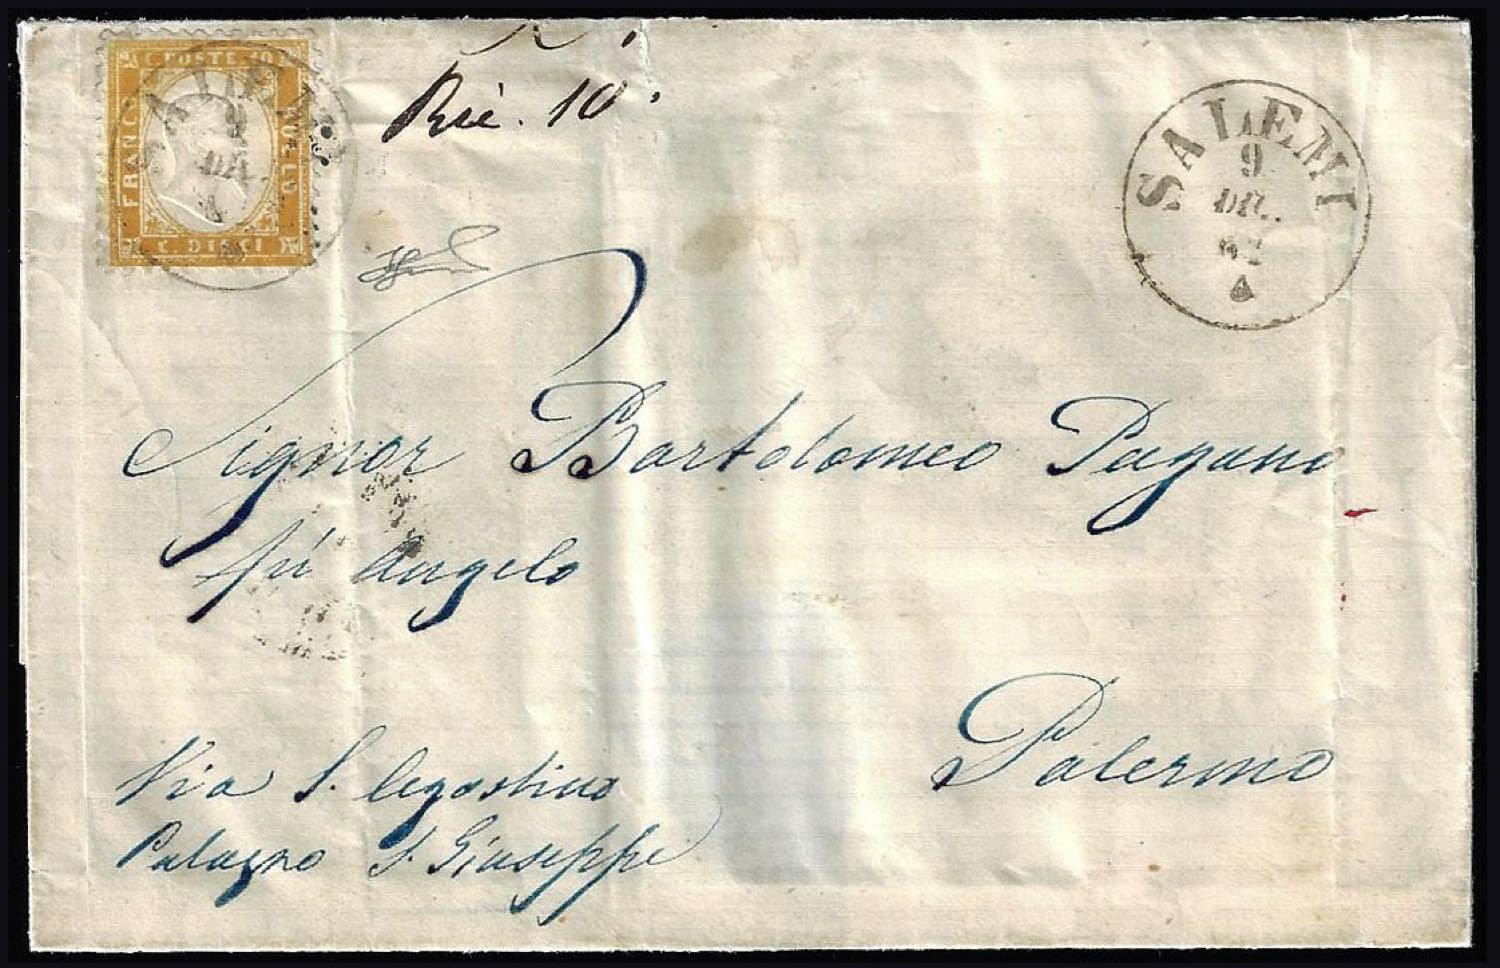 C. POSTE 10
FRANCO
BOLLO
C. DIECI
SALEMI
9
Ric. 10.
SALEMI
9
DIC.
62
Signor Bartolomeo Pagano
fu Angelo
Palermo
Via S. Agostino
Palazzo S. Giuseppe